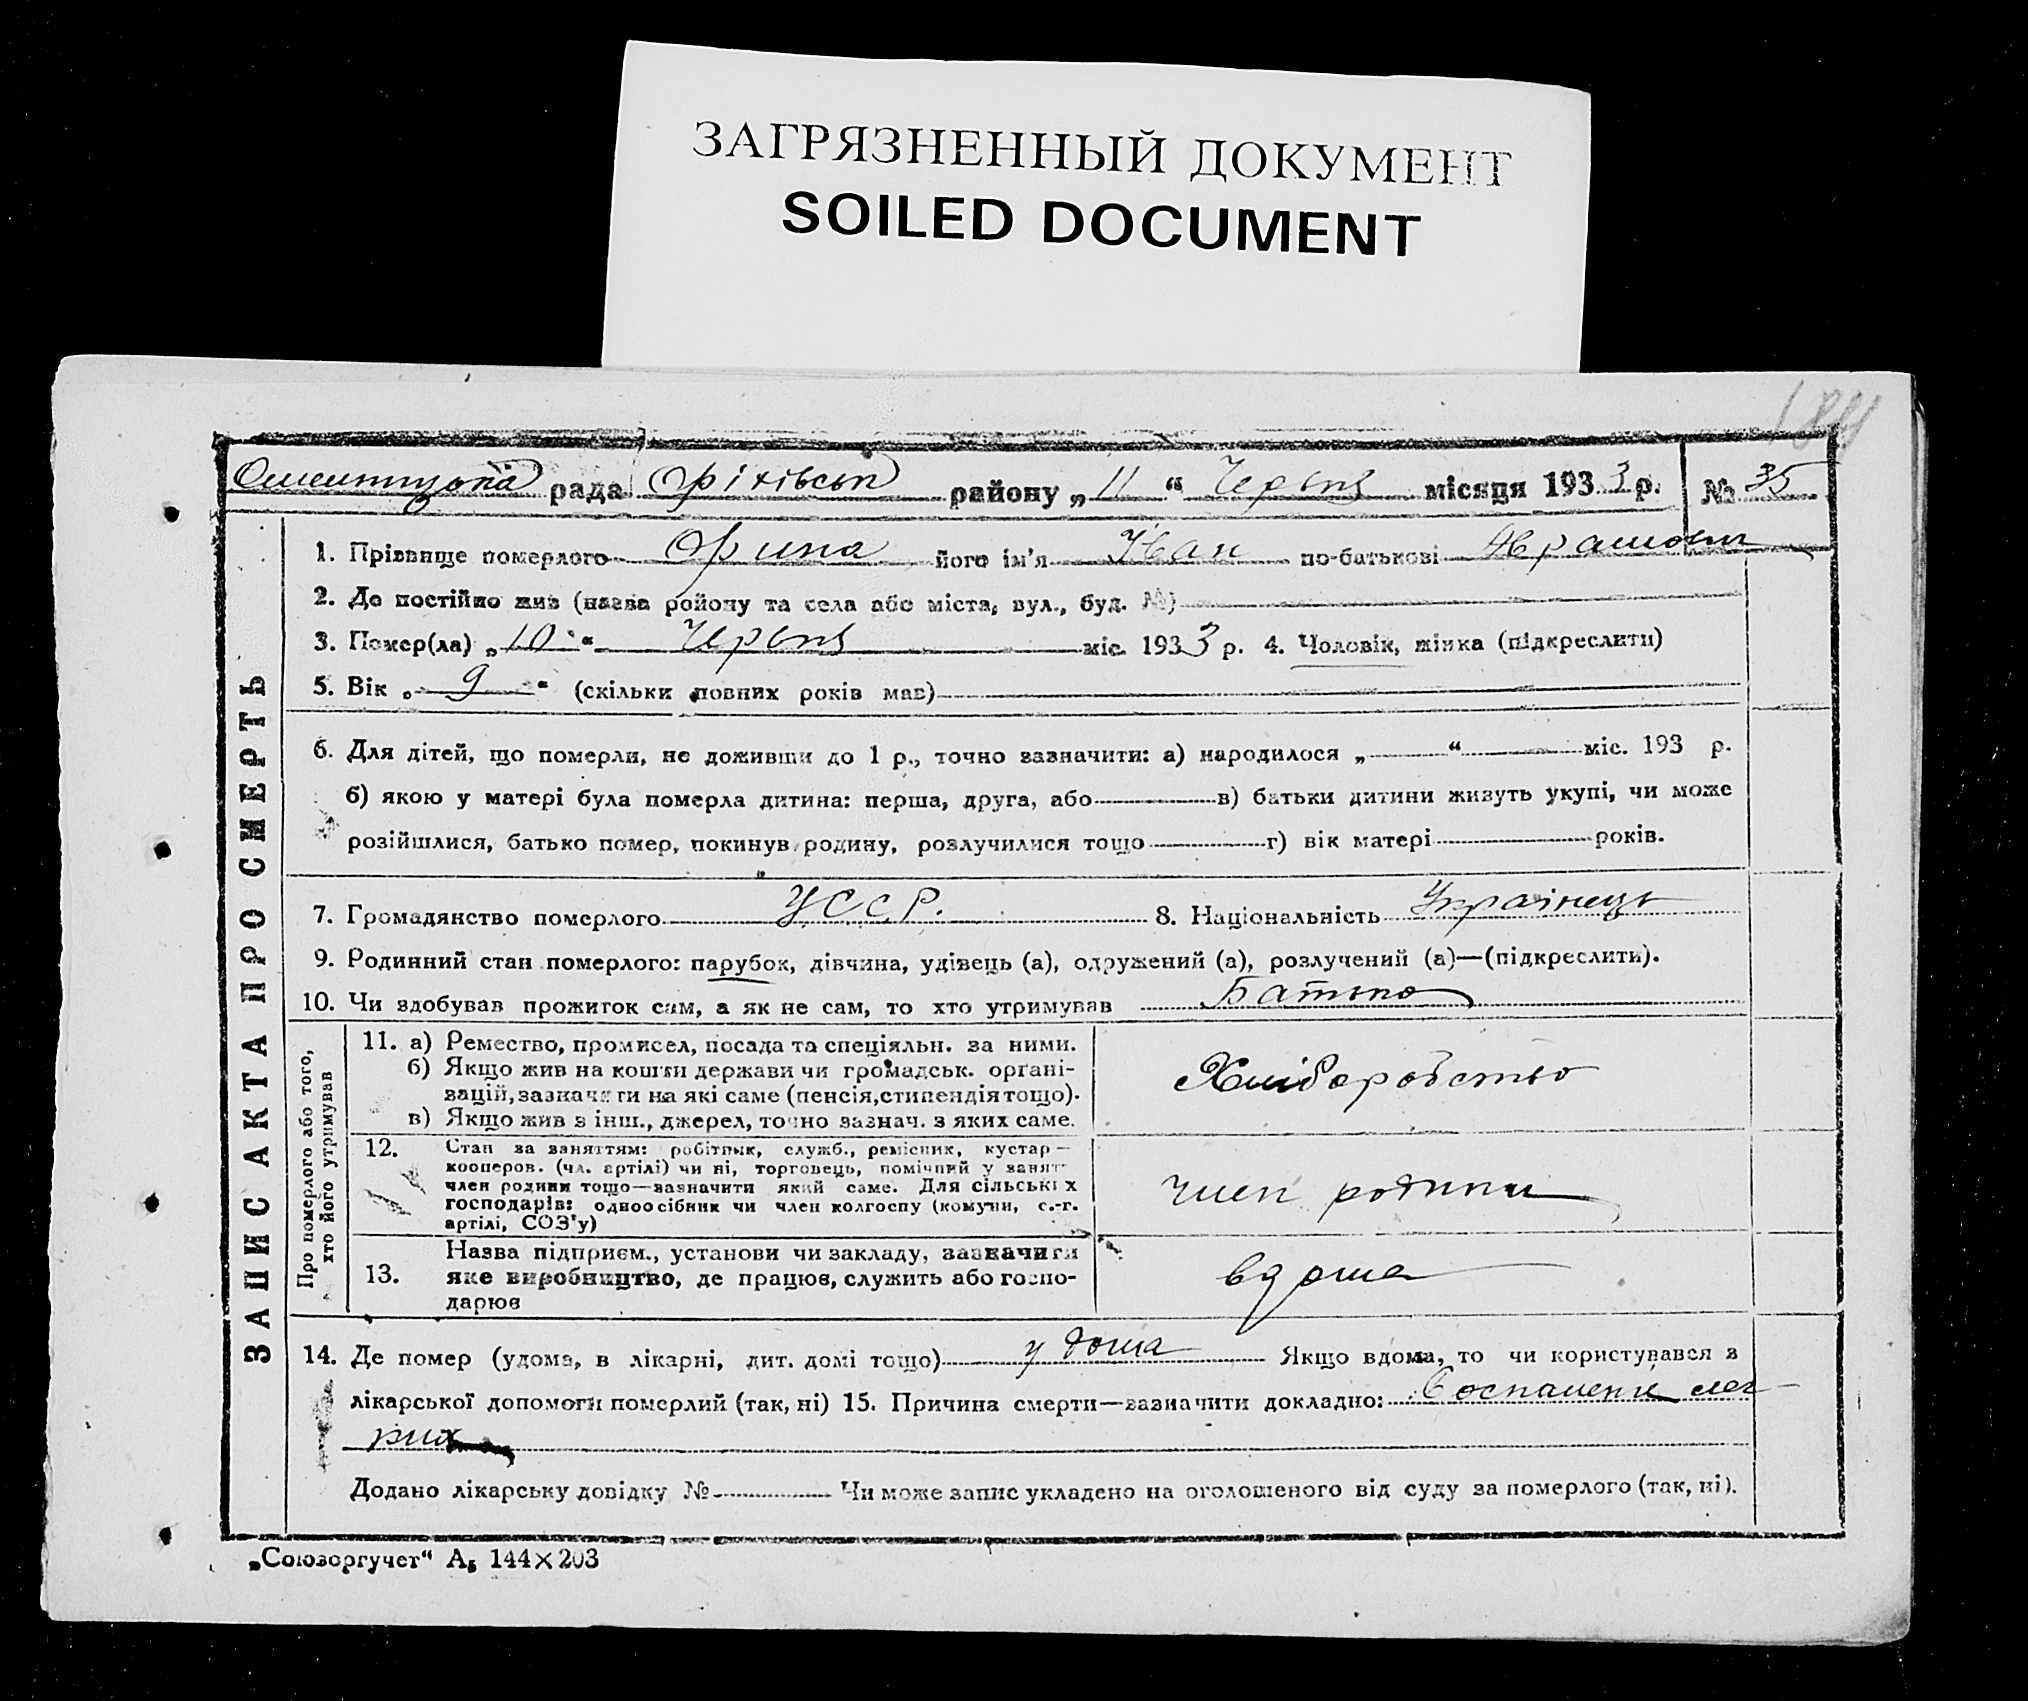 ЗАГРЯЗНЕННЫЙ ДОКУМЕНТ
SOILED DOCUMENT
рада Оріхівськ району „ 11 “ Червня місяця 193 3 р. № 35
ЗАПИС АКТА ПРО СМЕРТЬ
1. Прізвище померлого його ім'я Іван по-батькові
2. Де постійно жив (назва району та села або міста, вул., буд. №)
3. Помер(ла) „ 10 “ Червня міс. 193 3 р. 4. Чоловік, жінка (підкреслити)
5. Вік „ 9 “ (скільки повних років мав)
6. Для дітей, що померли, не доживши до 1 р., точно зазначити: а) народилося „ “ міс. 193 р.
б) якою у матері була померла дитина: перша, друга, або в) батьки дитини живуть укупі, чи може
розійшлися, батько помер, покинув родину, розлучилися тощо г) вік матері років.
7. Громадянство померлого УССР. 8. Національність Українець
9. Родинний стан померлого: парубок, дівчина, удівець (а), одружений (а), розлучений (а)—(підкреслити).
10. Чи здобував прожиток сам, а як не сам, то хто утримував Батько
Про померлого або того,
хто його утримував
11. а) Ремество, промисел, посада та спеціяльн. за ними.
б) Якщо жив на кошти держави чи громадськ. органі-
зацій, зазначити на які саме (пенсія, стипендія тощо).
в) Якщо жив з інш., джерел, точно зазнач. з яких саме.
Хліборобство
12. Стан за заняттям: робітник, служб., ремісник, кустар—
кооперов. (чл. артілі) чи ні, торговець, помічний у занят
член родини тощо—зазначити який саме. Для сільських
господарів: одноосібник чи член колгоспу (комуни, с.-г.
артілі, СОЗ'у)
член родини
13. Назва підприєм., установи чи закладу, зазначити
яке виробництво, де працює, служить або госпо-
дарює
вдома
14. Де помер (удома, в лікарні, дит. домі тощо) у дома Якщо вдома, то чи користувався з
лікарської допомоги померлий (так, ні) 15. Причина смерти—зазначити докладно: Воспаления лег
ких
Додано лікарську довідку № Чи може запис укладено на оголошеного від суду за померлого (так, ні).
„Союзоргучет“ А5 144×203